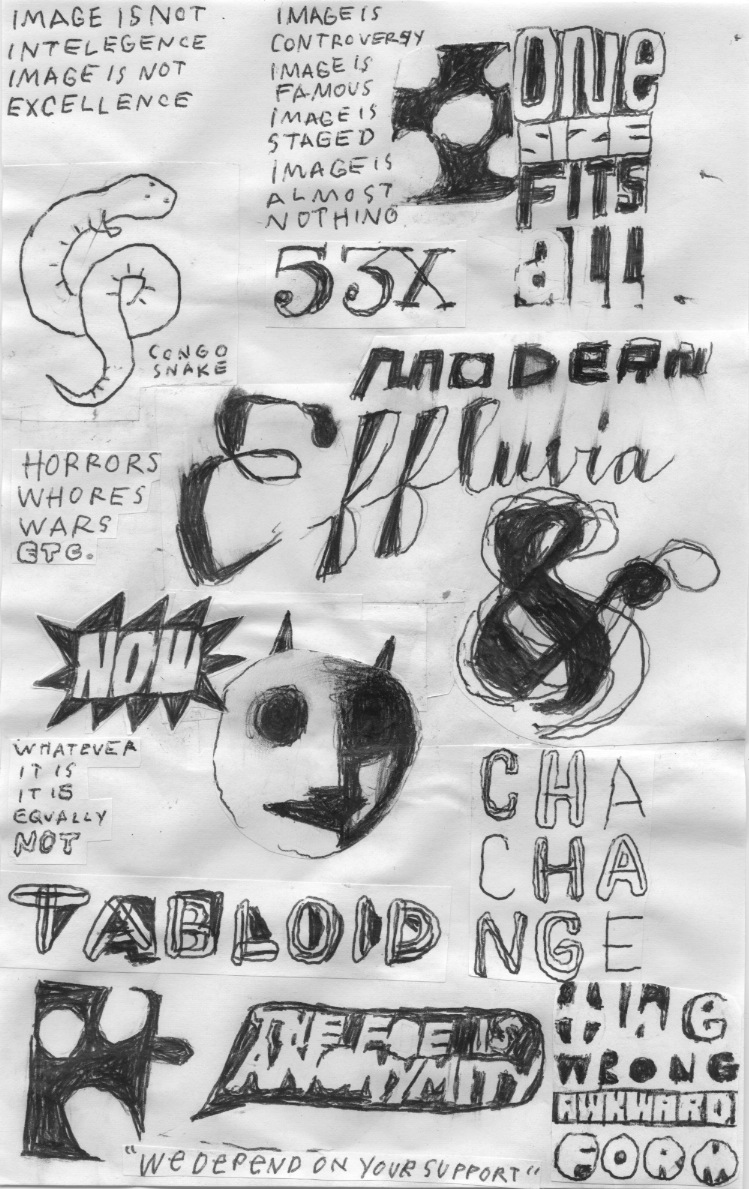 IMAGE IS NOT
INTELEGENCE
IMAGE IS NOT
EXCELLENCE
IMAGE IS
CONTROVERSY
IMAGE IS
FAMOUS
IMAGE IS
STAGED
IMAGE IS
ALMOST
NOTHING
ONE
SIZE
FITS
all
53X
CONGO
SNAKE
MODERN
Effluvia
HORRORS
WHORES
WARS
ETC.
&
NOW
WHATEVER
IT IS
IT IS
EQUALLY
NOT
CHA
CHA
NGE
TABLOID
THE FOE IS
ANONYMITY
the
WRONG
AWKWARD
FORM
"WE DEPEND ON YOUR SUPPORT"